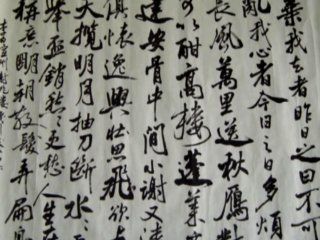 棄我去者昨日之日不可
亂我心者今日之日多煩
長風萬里送秋鴈對
可以酣高樓蓬萊
建安骨中間小謝又清
俱懷逸興壯思飛欲上
天攬明月抽刀斷水〻
舉盃銷愁〻更愁人生在
稱意明朝散髮弄扁舟
李白宣州謝朓樓